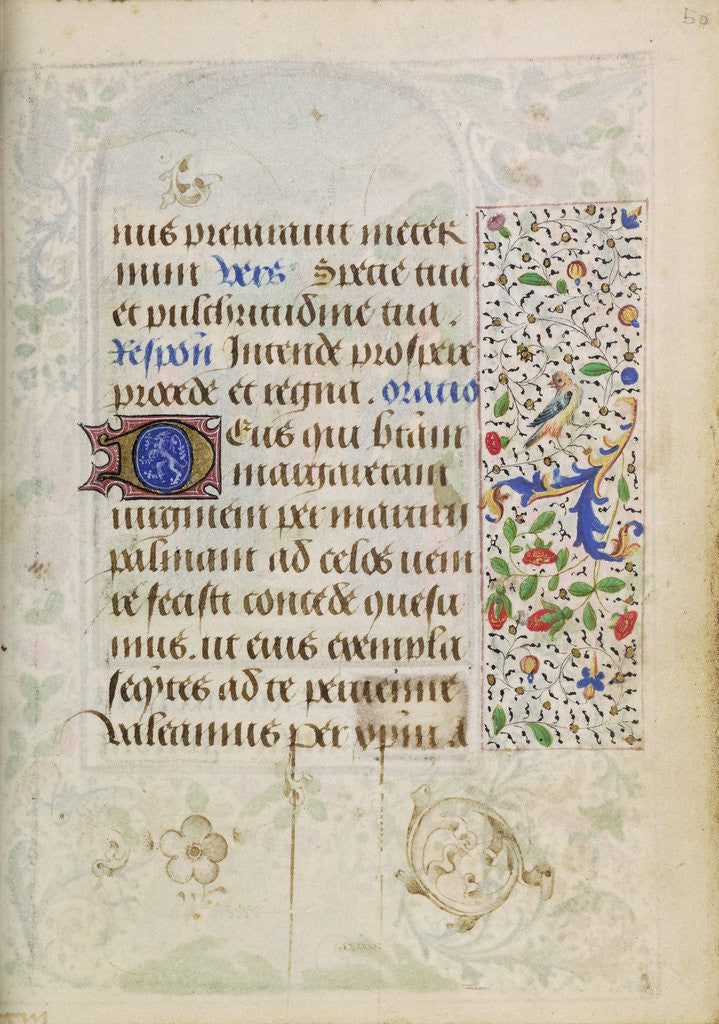 50
nus preparauit in eter
num Vers Specie tua
et pulchritudine tua.
Respon̄ Intende prospere
procede et regna. oratio
Deus qui btām
margaretam
uirginem per martirij
palmam ad celos ueni
re fecisti concede quesu
mus. ut eius exempla
seq̄ntes ad te peruenire
valeamus per xp̄m